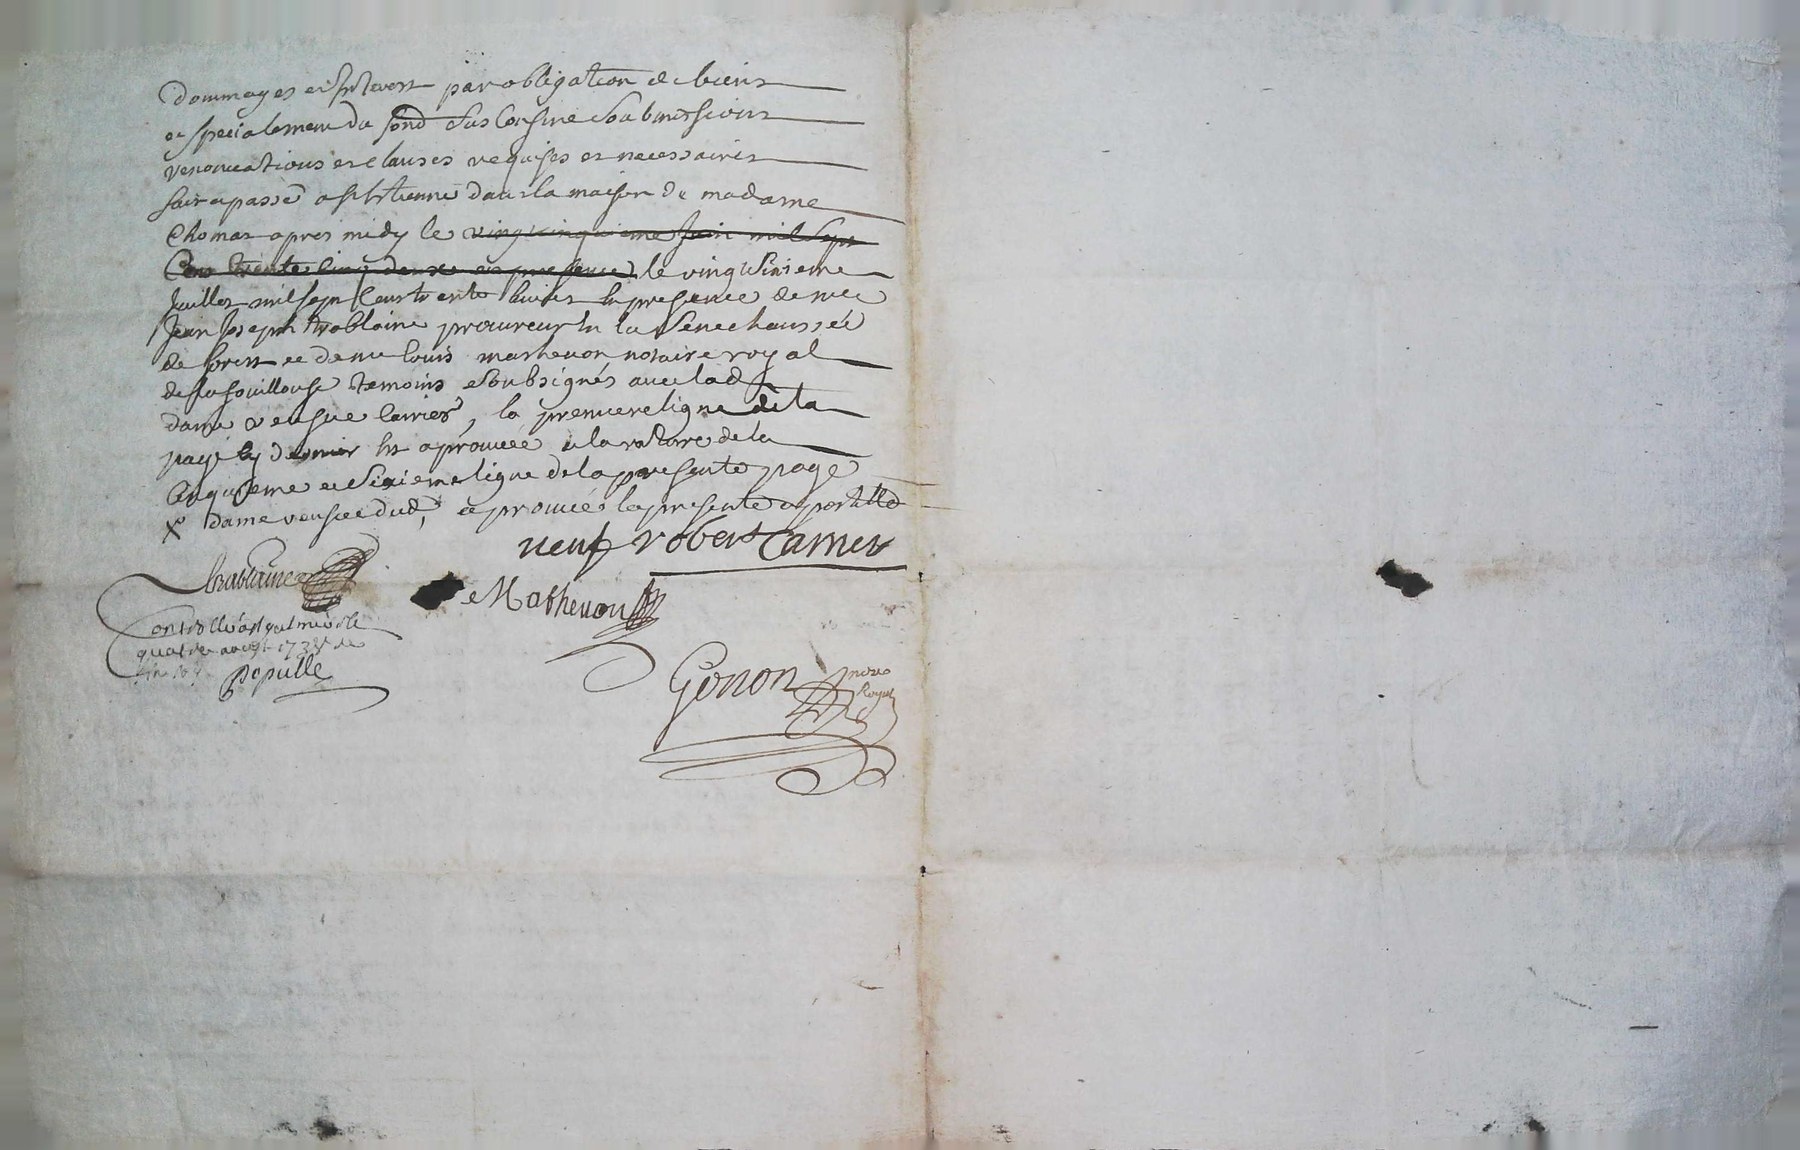 dommages et Interest par obligation de biens
et specialement du fond sus Confiné soubmissions
renonciations et clauses requises et necessaires
fait et passé a st etienne dans la maison de madame
Thomas apres midy le vingt cinquieme Juin mil sept
Cent trente le vingt sixieme
Juillet mil sept Cent trente huit En presence de me
Jean Joseph trablaine procureur En la Senechaussée
de forest et de me Louis mathevon notaire royal
de la fouillouse temoins soubsignés avec lad
dame veufve Carrier, la premiere ligne de la
page dernier Est aprouvée a la rature de la
Cinquieme et Sixieme ligne de la presente page
x dame veufve dud, aprouvée la presente
veuf robert Carrier
Trablaine
Mathevon
Controllé a st galmier le
quatre aoust 1738
Populle
Gonon nore
Royal